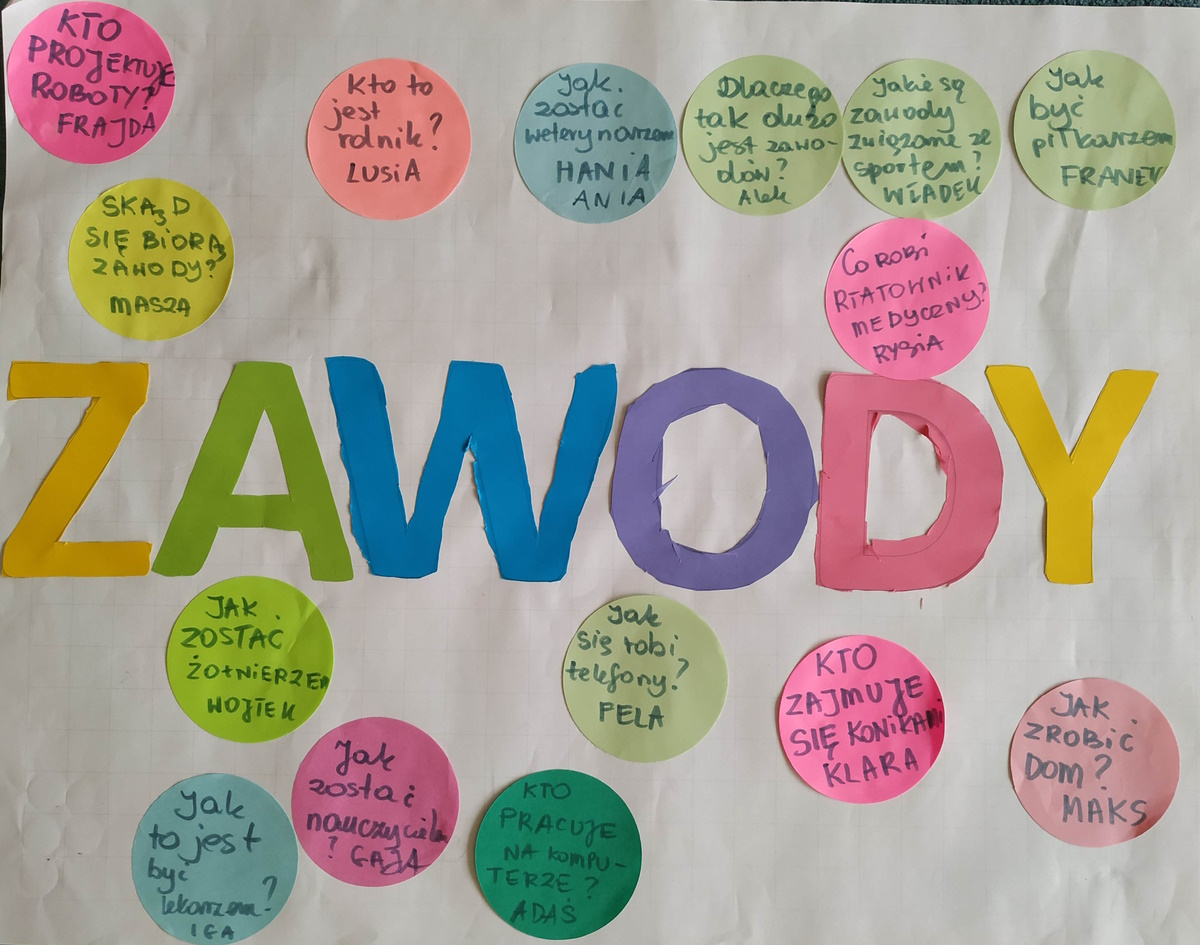 KTO
PROJEKTUJE
ROBOTY?
FRAJDA
Kto to
jest
rolnik?
LUSIA
Jak
zostać
weterynarzem
HANIA
ANIA
Dlaczego
tak dużo
jest zawo-
dów?
Alek
Jakie są
zawody
związane ze
sportem?
WŁADEK
Jak
być
piłkarzem
FRANEK
SKĄD
SIĘ BIORĄ
ZAWODY?
MASZA
Co ROBI
RTATOWNIK
MEDYCZNY?
RYSIA
ZAWODY
JAK
ZOSTAĆ
ŻOŁNIERZEM
WOJTEK
Jak
się robi
telefony?
FELA
KTO
ZAJMUJE
SIĘ KONIKAMI
KLARA
JAK
ZROBIĆ
DOM?
MAKS
Jak
zostać
nauczyciela
? GAJA
Jak
to jest
być
lekarzem?
IGA
KTO
PRACUJE
NA KOMPU-
TERZE?
ADAŚ